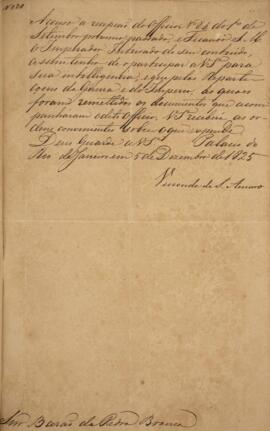 Nº 20
Accuso a recepção do Officio Nº 24 do 1º de
Setembro proximo passado, e ficando S. M.
o Imperador Inteirado do seu contheudo,
assim tenho de participar a VSª para
Sua intelligencia, e que pelas Reparti-
coens da Guerra e do Imperio, ás quaes
foram remettidos os documentos que acom-
panharam o dito Officio, VSª receberá as or-
dens convenientes sobre o que expende.
Deus Guarde a VSª Palacio do
Rio de Janeiro em 5 de Dezembro de 1825
Visconde de S. Amaro
Snr. Barão da Pedra Branca